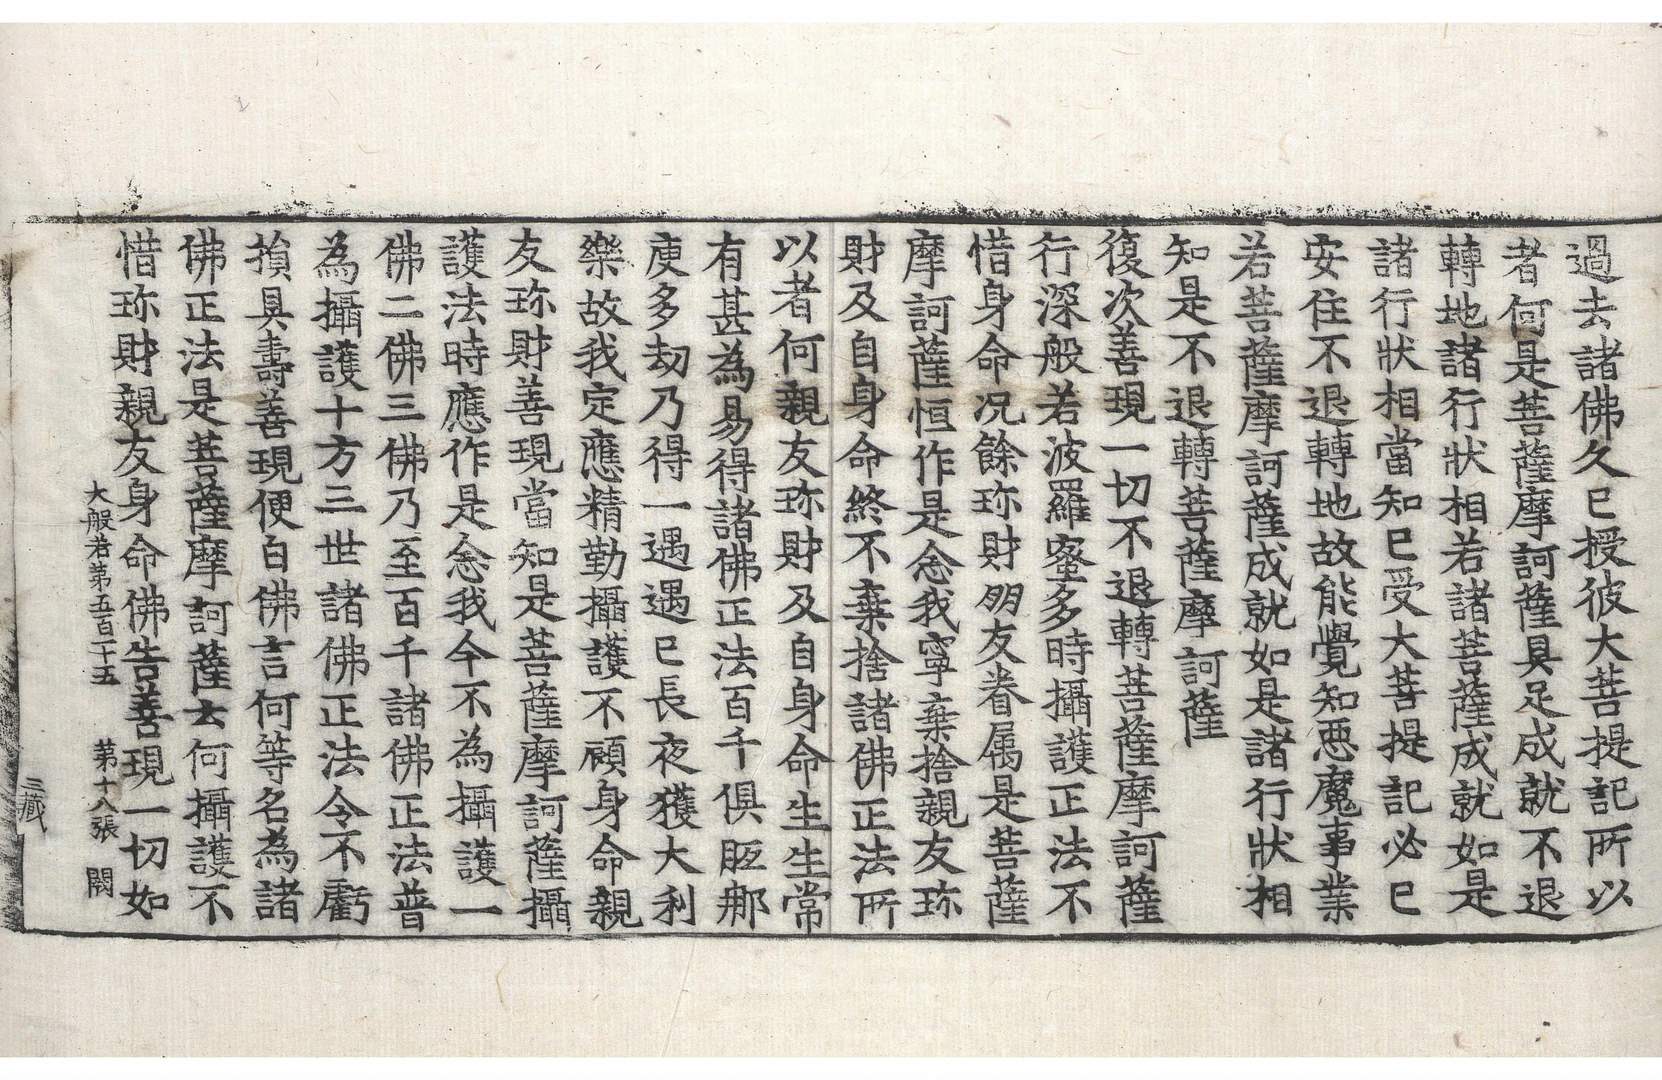 過去諸佛久已授彼大菩提記所以
者何是菩薩摩訶薩具足成就不退
轉地諸行狀相若諸菩薩成就如是
諸行狀相當知已受大菩提記必已
安住不退轉地故能覺知惡魔事業
若菩薩摩訶薩成就如是諸行狀相
知是不退轉菩薩摩訶薩
復次善現一切不退轉菩薩摩訶薩
行深般若波羅蜜多時攝護正法不
惜身命况餘珎財朋友眷属是菩薩
摩訶薩恒作是念我寧棄捨親友珎
財及自身命終不棄捨諸佛正法所
以者何親友珎財及自身命生生常
有甚為易得諸佛正法百千俱胝那
庾多劫乃得一遇遇已長夜獲大利
樂故我定應精勤攝護不顧身命親
友珎財善現當知是菩薩摩訶薩攝
護法時應作是念我今不為攝護一
佛二佛三佛乃至百千諸佛正法普
為攝護十方三世諸佛正法令不虧
損具壽善現便白佛言何等名為諸
佛正法是菩薩摩訶薩云何攝護不
惜珎財親友身命佛告善現一切如
大般若第五百二十五 第十八張 闕
三藏